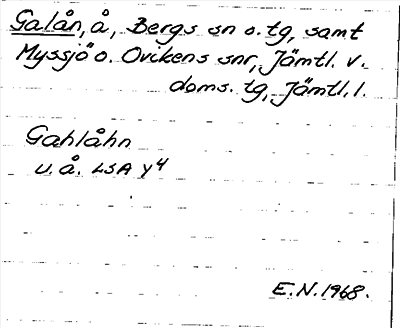 Galån, å, Bergs sn o. tg, samt
Myssjö o. Ovikens snr, Jämtl. v.
doms. tg, Jämtl. l.
Gahlåhn
u. å. LSA Y4
E.N. 1968.